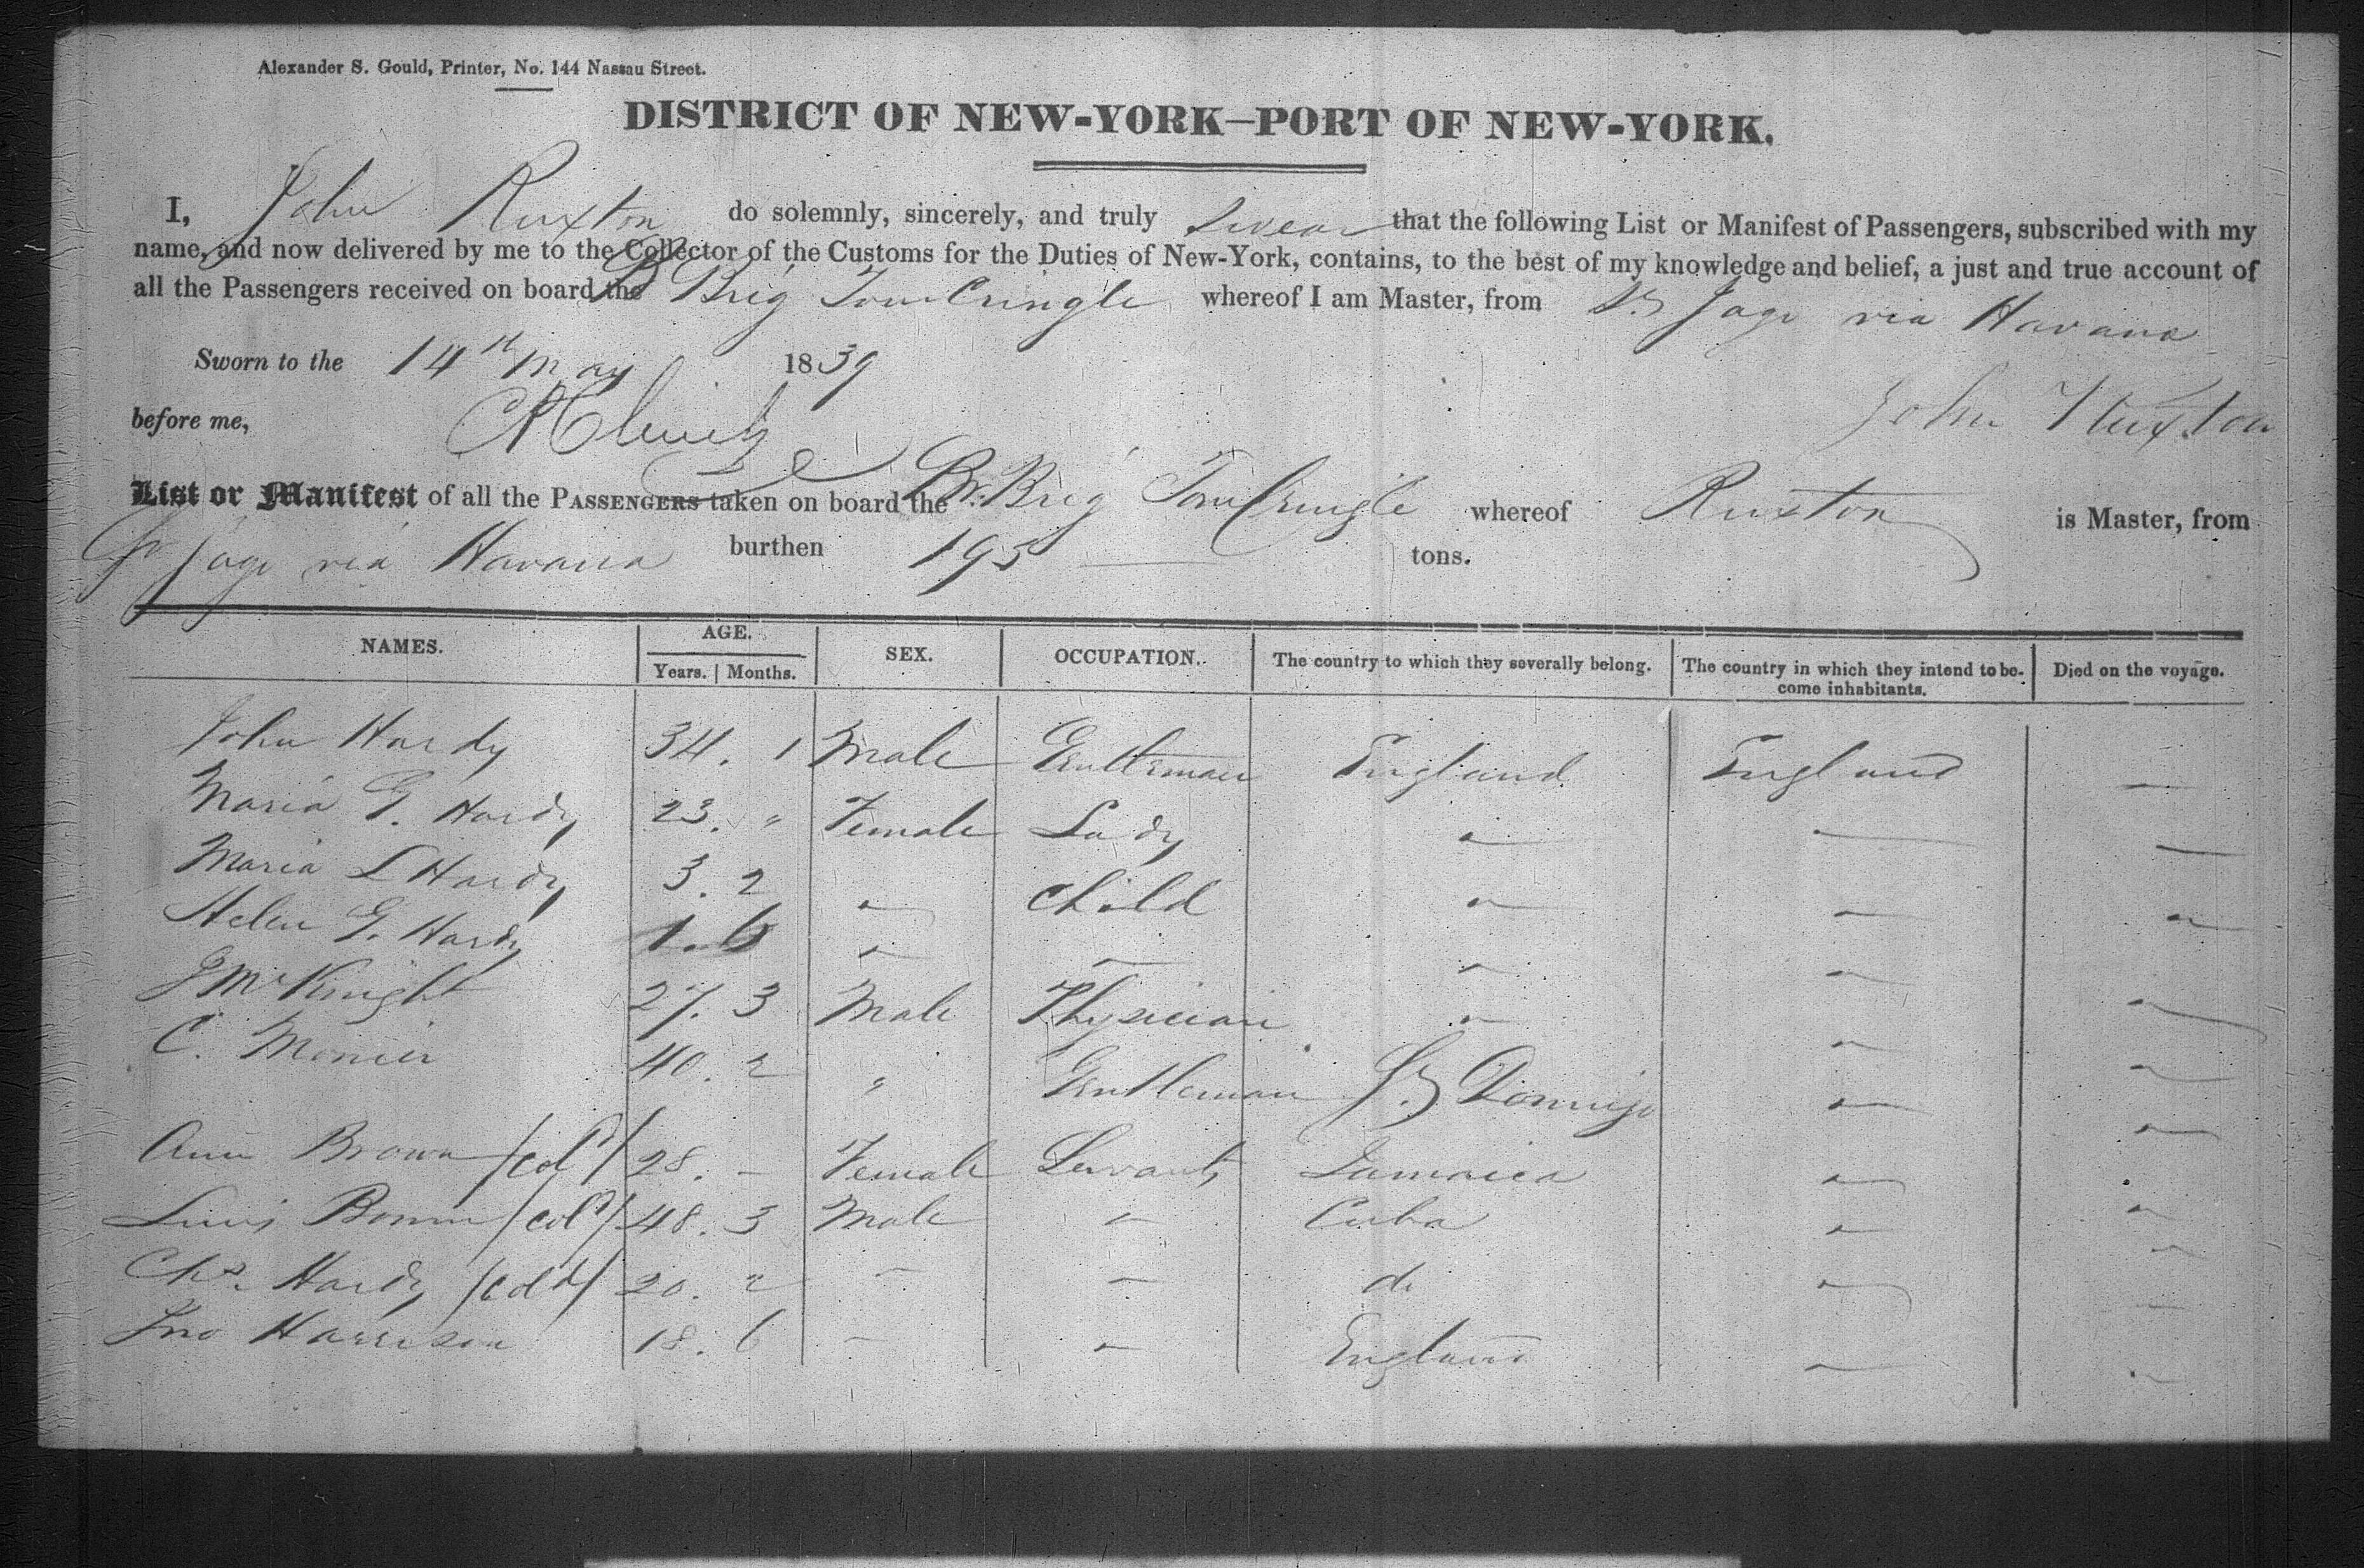 Alexander S. Gould, Printer, No. 144 Nassau Street.
DISTRICT OF NEW-YORK—PORT OF NEW-YORK.
I, John Ruxton do solemnly, sincerely, and truly swear that the following List or Manifest of Passengers, subscribed with my
name, and now delivered by me to the Collector of the Customs for the Duties of New-York, contains, to the best of my knowledge and belief, a just and true account of
all the Passengers received on board the Br Brig Tom Cringle whereof I am Master, from St Jago via Havana
Sworn to the 14th May 1839
before me, John Ruxton
List or Manifest of all the PASSENGERS taken on board the Br. Brig Tom Cringle whereof Ruxton is Master, from
St Jago via Havana burthen 195 tons.
NAMES. AGE. Years. | Months. SEX. OCCUPATION. The country to which they severally belong. The country in which they intend to become inhabitants. Died on the voyage.
John Hardy 34. 1 Male Gentleman England England —
Maria G. Hardy 23. " Female Lady " — —
Maria L Hardy 3. 2 " Child " " "
Helen G. Hardy 1. 6 " " " " "
J McKnight 27. 3 Male Physician " " "
C. Monier 40. 2 " Gentleman St Domingo " "
Ann Brown /cold/ 28. — Female Servant Jamaica " "
Luis Bonne /cold/ 48. 3 Male " Cuba " "
Chs. Hardy /cold/ 20. 2 " " do " "
Jno Harrison 18. 6 " " England " "